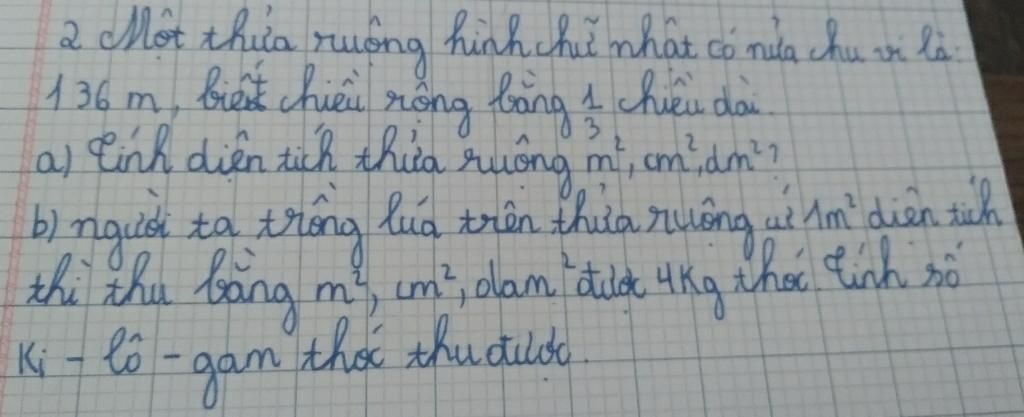 2 Một thửa ruộng hình chữ nhật có nửa chu vi là:
136 m, biết chiều rộng bằng 1/3 chiều dài.
a) Tính diện tích thửa ruộng m², cm², dm²?
b) người ta trồng lúa trên thửa ruộng cứ 1m² diện tích
thì thu bằng m², cm², dam² được 4Kg thóc. Tính số
Ki - lô - gam thóc thu được.